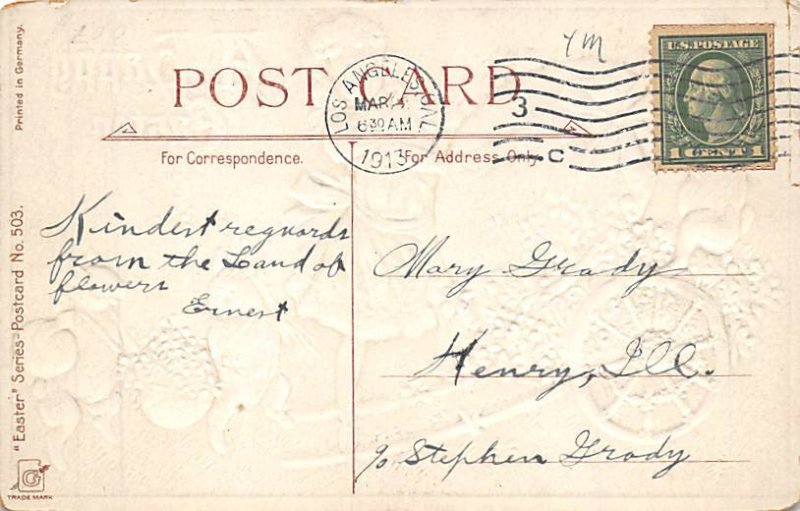 Printed in Germany.
"Easter" Series-Postcard No. 503.
TRADE MARK
POST CARD
LOS ANGELES, CAL
MAR
630 AM
1913
3
C
YM
U.S. POSTAGE
1 CENT 1
For Correspondence.
For Address Only.
Kindest reguards
from the Land of
flowers
Ernest
Mary Grady
Henry, Ill.
c/o Stephen Grady